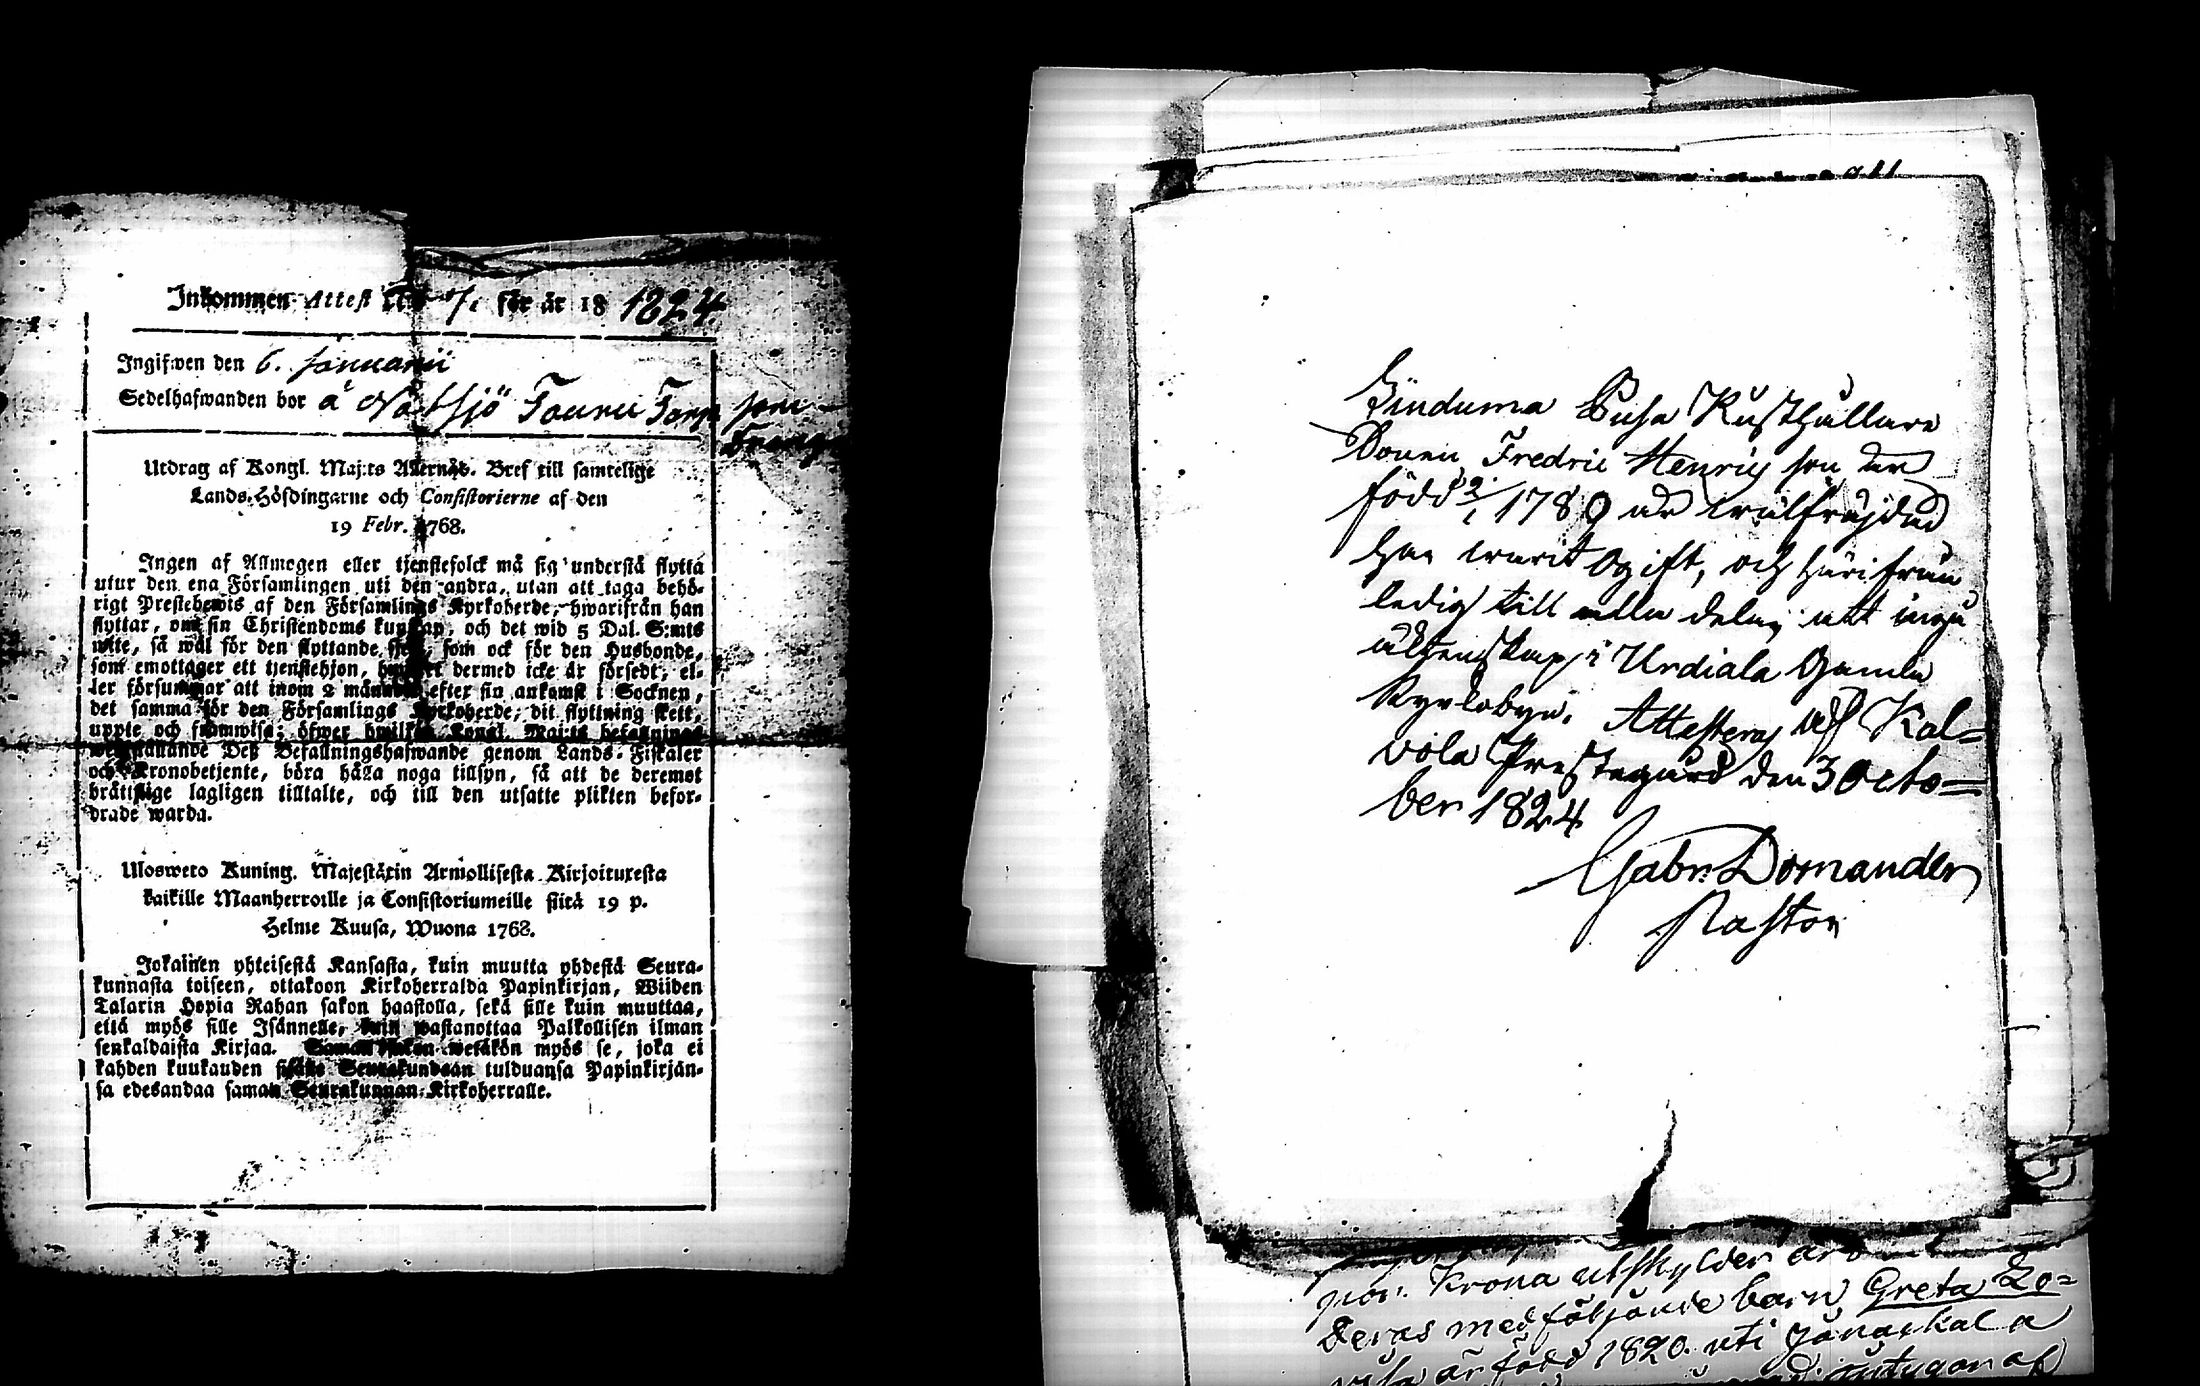 Inkommen Attest No 7. för år 18 1824.
Ingifwen den 6. Januarii
Sedelhafwanden bor å Nåtsjö Torp som
Utdrag af Kongl. Maj:ts Allernåd. Bref till samtelige
Lands-Höfdingarne och Consistorierne af den
19 Febr. 1768.
Ingen af Allmogen eller tjenstefolck må sig understå flytta
utur den ena Församlingen uti den andra, utan att taga behö-
rigt Prestebewis af den Församlings Kyrkoherde, hwarifrån han
flyttar, om sin Christendoms kunskap, och det wid 5 Dal. S:mts
wite, så wäl för den flyttande sjelf, som ock för den Husbonde,
som emottager ett tjenstehjon, hwilket dermed icke är försedt; el-
ler försummar att inom 2 månader efter sin ankomst i Socknen,
det samma för den Församlings Kyrkoherde, dit flyttning skett,
uppte och framwisa; öfwer hwilket Kongl. Maj:ts befallnings
Deß Befallningshafwande genom Lands-Fiskaler
och Kronobetjente, böra hålla noga tillsyn, så att de deremot
bråttslige lagligen tilltalte, och till den utsatte plikten befor-
drade warda.
Ulosweto Kuning. Majestätin Armollisesta Kirjoituxesta
kaikille Maanherroille ja Consistoriumeille siitä 19 p.
Helme Kuusa, Wuona 1768.
Jokainen yhteisestä Kansasta, kuin muutta yhdestä Seura-
kunnasta toiseen, ottakoon Kirkoherralda Papinkirjan, Wiiden
Talarin Hopia Rahan sakon haastolla, sekä sille kuin muuttaa,
että myös sille Isännelle, kuin wastanottaa Palkollisen ilman
senkaldaista Kirjaa. Saman sakon wetäkön myös se, joka ei
kahden kuukauden sisälle Seurakundaan tulduansa Papinkirjän-
sä edesandaa saman Seurakunnan Kirkoherralle.
Rusthållare
Sonen Fredric Henricsson den
född 2/1 1789 är wälfräjdad
har warit ogift, och härifrån
ledig till alla delar att ingå
äktenskap i Urdiala Gamla
Kyrkobyn. Attesteras uti Kal-
vola Prestegård den 3 Octo-
ber 1824
Gabr. Domander
Pastor
Krona utskylder
Deras medföljande barn Greta Lo-
visa är född 1820. uti Janakkala